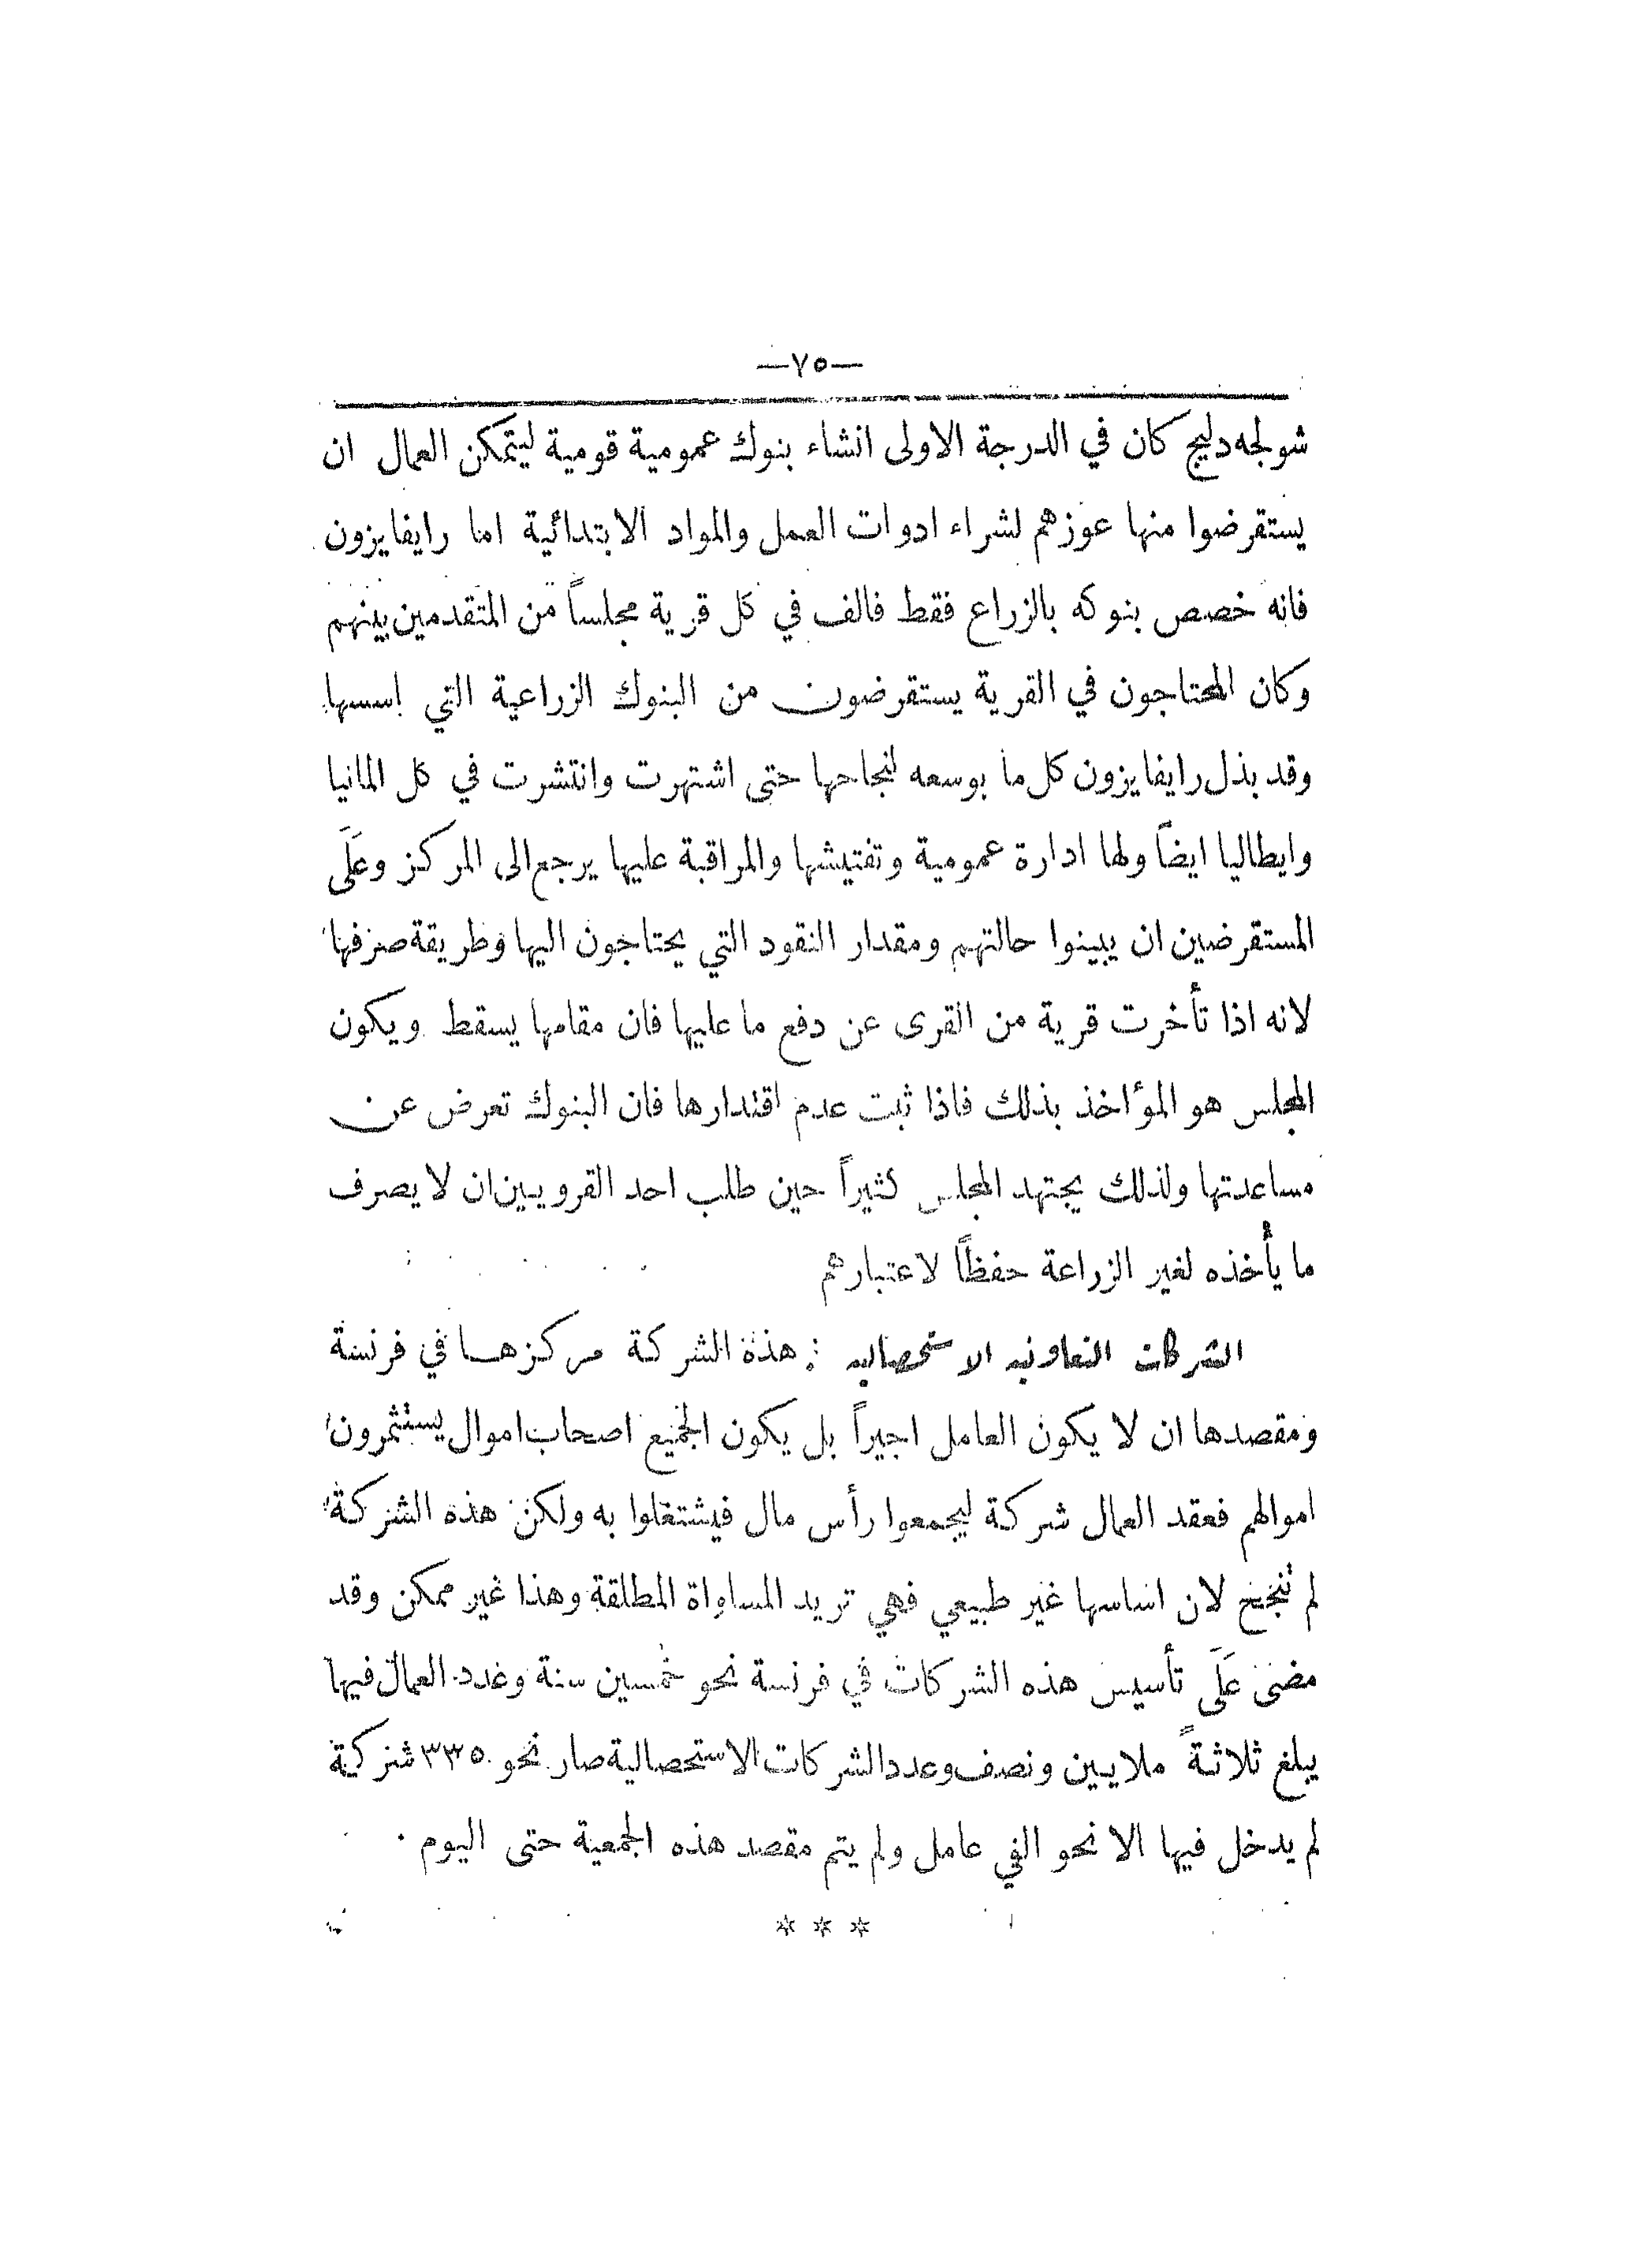 —٧٥—
شولجه دليج كان في الدرجة الاولى انشاء بنوك عمومية قومية ليتمكن العمال ان
يستقرضوا منها عوزهم لشراء ادوات العمل والمواد الابتدائية اما رايفايزون
فانه خصص بنوكه بالزراع فقط فالف في كل قرية مجلساً من المتقدمين بينهم
وكان المحتاجون في القرية يستقرضون من البنوك الزراعية التي اسسها
وقد بذل رايفايزون كل ما بوسعه لنجاحها حتى اشتهرت وانتشرت في كل المانيا
وايطاليا ايضاً ولها ادارة عمومية وتفتيشها والمراقبة عليها يرجع الى المركز وعَلَى
المستقرضين ان يبينوا حالتهم ومقدار النقود التي يحتاجون اليها وطريقة صرفها
لانه اذا تأخرت قرية من القرى عن دفع ما عليها فان مقامها يسقط ويكون
المجلس هو المؤاخذ بذلك فاذا ثبت عدم اقتدارها فان البنوك تعرض عن
مساعدتها ولذلك يجتهد المجلس كثيراً حين طلب احد القرويين ان لا يصرف
ما يأخذه لغير الزراعة حفظاً لاعتبارهم
الشركات التعاونية الاستحصالية : هذه الشركة مركزها في فرنسة
ومقصدها ان لا يكون العامل اجيراً بل يكون الجميع اصحاب اموال يستثمرون
اموالهم فعقد العمال شركة ليجمعوا رأس مال فيشتغلوا به ولكن هذه الشركة
لم تنجح لان اساسها غير طبيعي فهي تريد المساواة المطلقة وهذا غير ممكن وقد
مضى عَلَى تأسيس هذه الشركات في فرنسة نحو خمسين سنة وعدد العمال فيها
يبلغ ثلاثة ملايين ونصف وعدد الشركات الاستحصالية صار نحو ٣٣٥ شركة
لم يدخل فيها الا نحو الفي عامل ولم يتم مقصد هذه الجمعية حتى اليوم ·
* * *